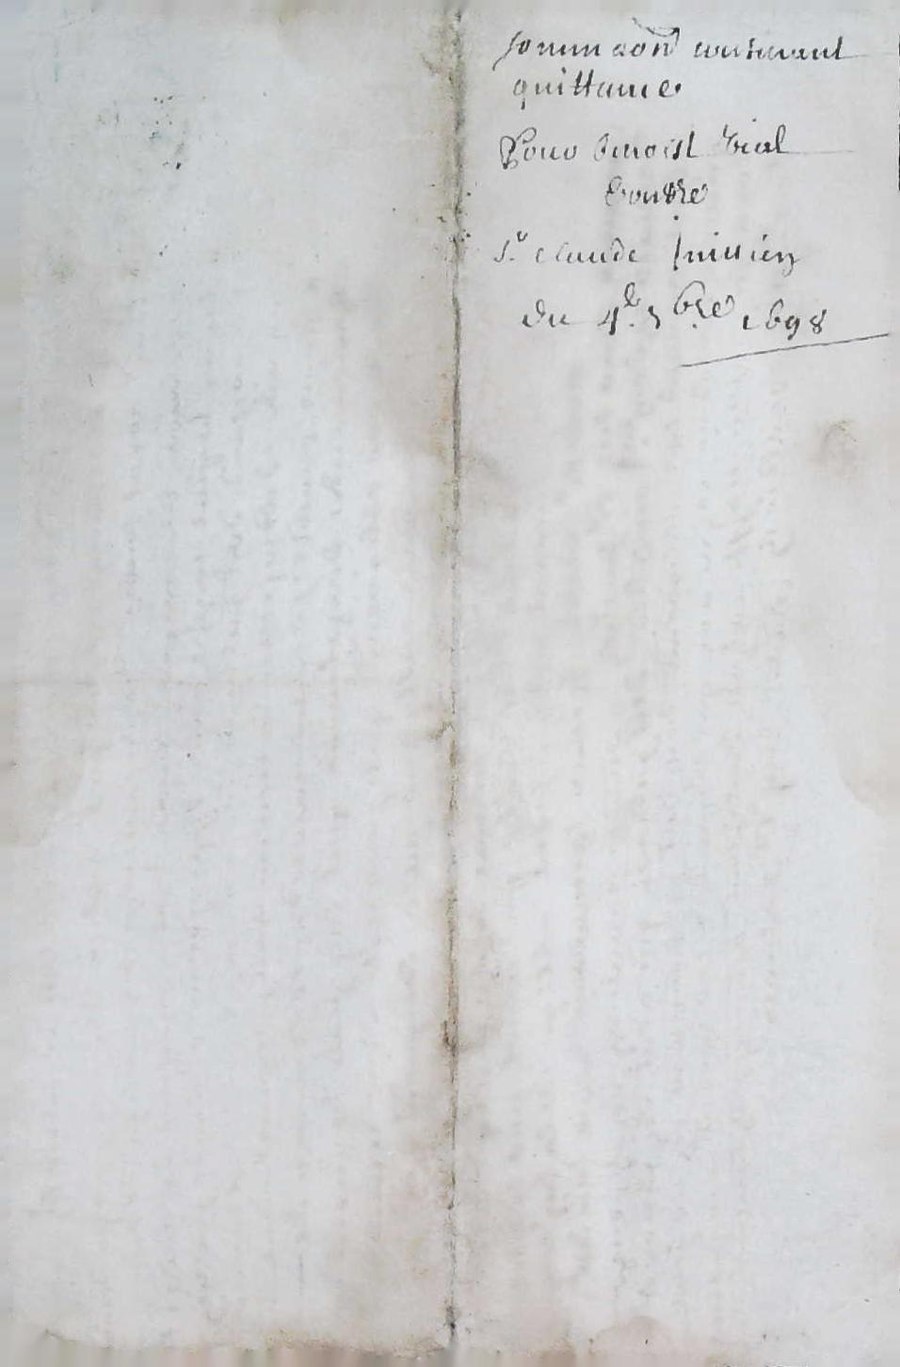 sommaõn contenant
quittance
Pour benoist Vial
Contre
Sr. claude
du 4e. xbre 1698